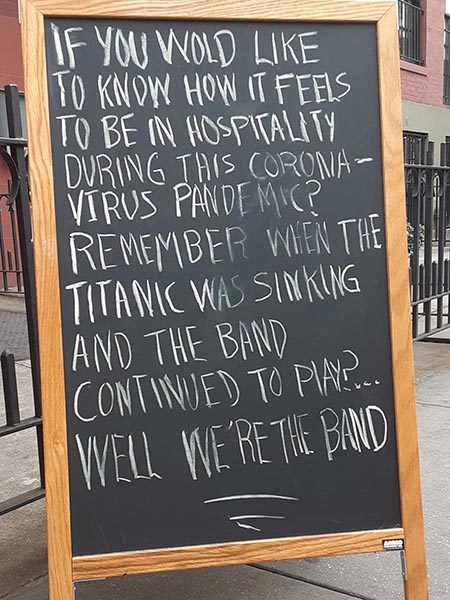 IF YOU WOLD LIKE
TO KNOW HOW IT FEELS
TO BE IN HOSPITALITY
DURING THIS CORONA-
VIRUS PANDEMIC?
REMEMBER WHEN THE
TITANIC WAS SINKING
AND THE BAND
CONTINUED TO PLAY?....
WELL WE'RE THE BAND